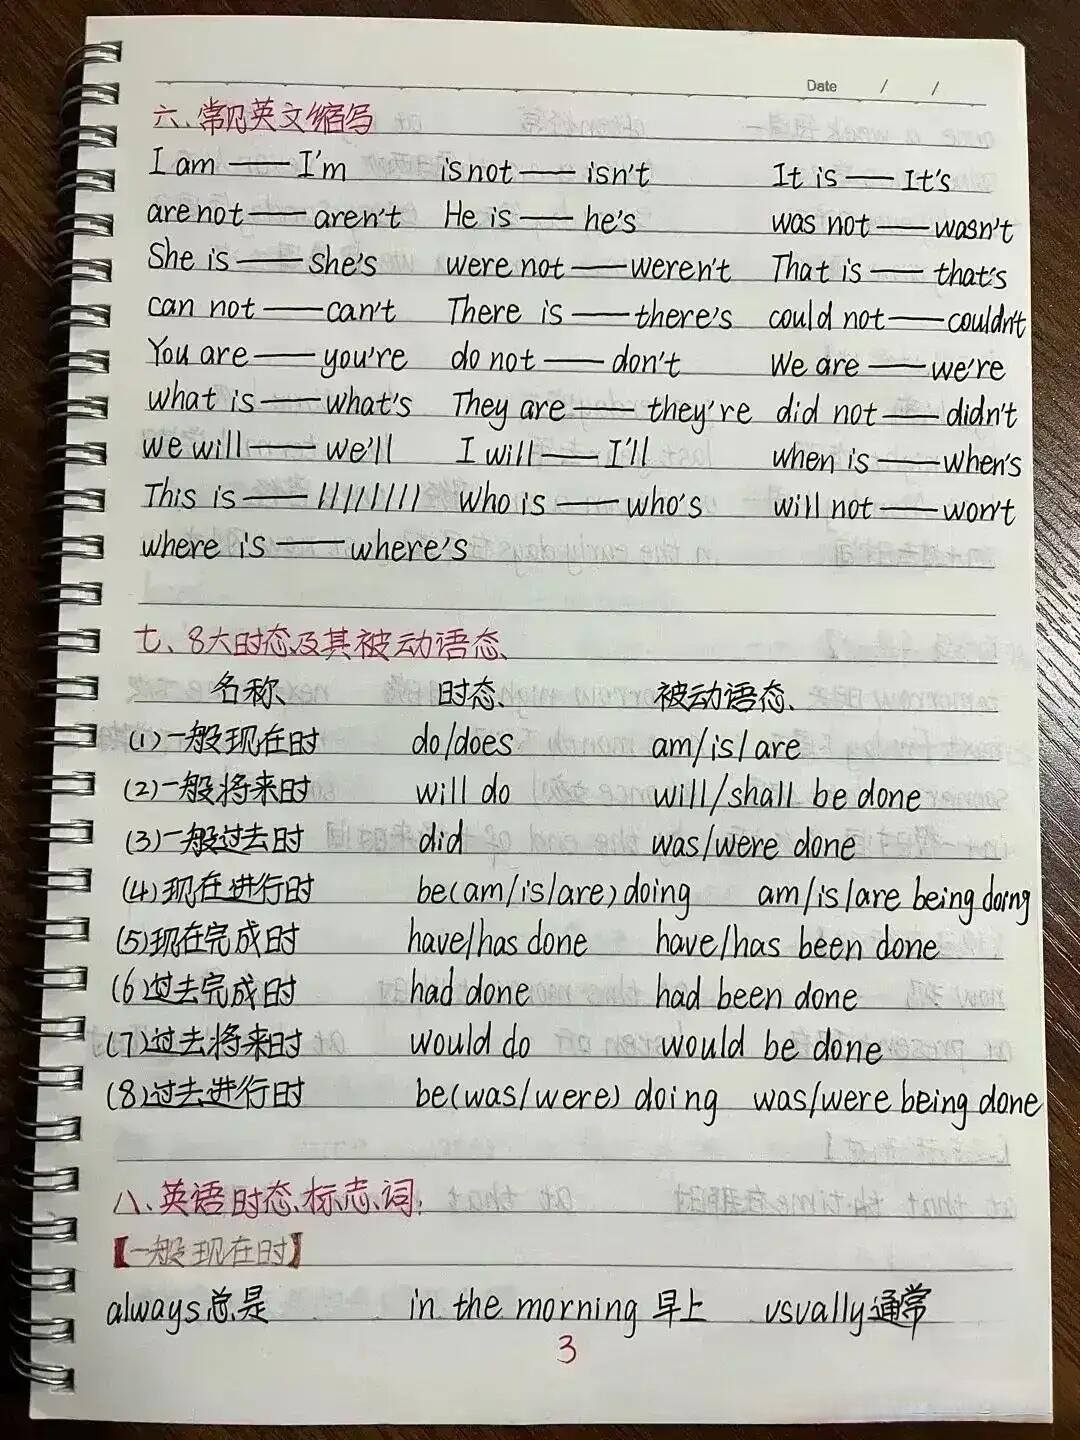 Date / /
六、常见英文缩写
I am —— I'm is not —— isn't It is —— It's
are not —— aren't He is —— he's was not —— wasn't
She is —— she's were not —— weren't That is —— that's
can not —— can't There is —— there's could not —— couldn't
You are —— you're do not —— don't We are —— we're
what is —— what's They are —— they're did not —— didn't
we will —— we'll I will —— I'll when is —— when's
This is —— ///////// Who is —— who's will not —— won't
where is —— where's
七、8大时态及其被动语态、
名称、 时态、 被动语态、
(1)一般现在时 do/does am/is/are
(2)一般将来时 will do will/shall be done
(3)一般过去时 did was/were done
(4)现在进行时 be(am/is/are)doing am/is/are being doing
(5)现在完成时 have/has done have/has been done
(6)过去完成时 had done had been done
(7)过去将来时 would do would be done
(8)过去进行时 be(was/were) doing was/were being done
八、英语时态、标志词:
【一般现在时】
always总是 in the morning 早上 vsually通常
3